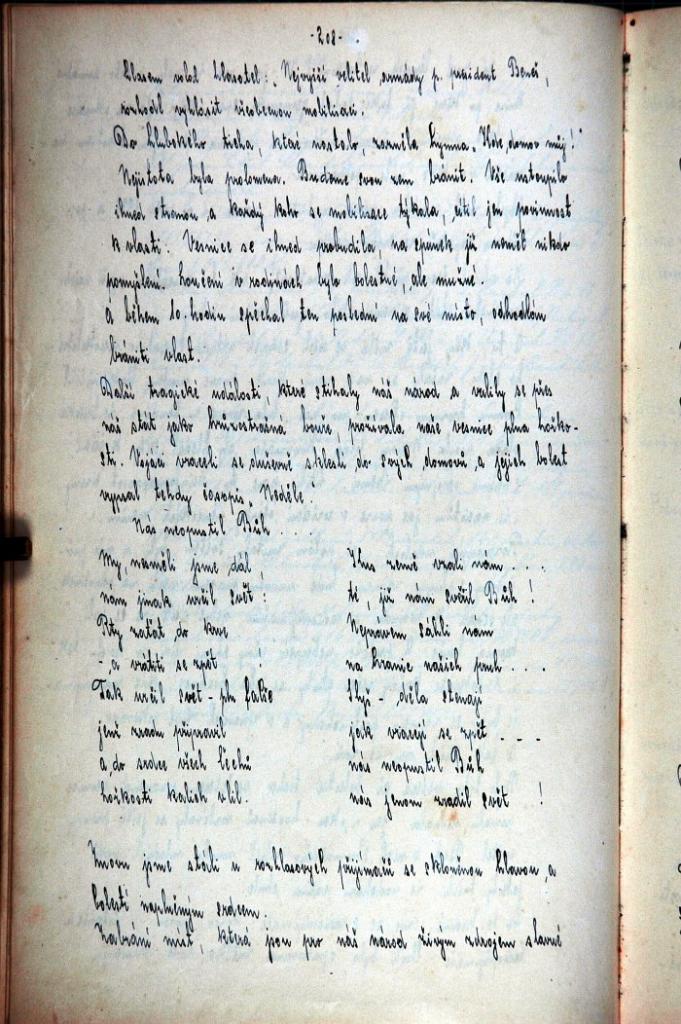 -208-.
hlasem volal hlasatel: „Nejvyšší velitel armády p. president Beneš,
rozhodl vyhlásit všeobecnou mobilisaci.
Do hlubokého ticha, které nastalo, zazněla hymna „Kde domov můj!"
Nejistota byla prolomena. Budeme svou zem bránit. Vše ustoupilo
ihned stranou a každý koho se mobilisace týkala, cítil jen povinnost
k vlasti. Vesnice se ihned probudila, na spánek již neměl nikdo
pomyšlení. Loučení v rodinách bylo bolestné, ale mužné.
A během 10. hodin spěchal ten poslední na své místo, odhodlán
brániti vlast.
Další tragické události, které stihaly náš národ a valily se přes
náš stát jako hrůzostrašná bouře, prožívala naše vesnice plna hořko-
sti. Vojáci vraceli se duševně sklesli do svých domovů a jejich bolest
vypsal tehdy časopis „Neděle."
Nás neopustil Bůh . . . .
My, neměli jsme dál
nám jinak určil svět!
Pěty zaťat do krve
a vrátiti se zpět
Tak určil svět - ph. faleš
jenž zradu připravil
a do srdce všech Čechů
hořkosti kalich vlil.
Kus země vzali nám . . . .
té, již nám svěřil Bůh !
Neprávem sáhli nám
na hranic našich pruh . . . .
Slyš - děla stenají
jak vracejí se zpět - - - -
nás neopustil Bůh
nás jenom zradil svět !
Znovu jsme stáli u rozhlasových přijimačů se skloněnou hlavou a
bolestí naplněným srdcem.
Zabrání míst, která jsou pro náš národ živým zdrojem slavné